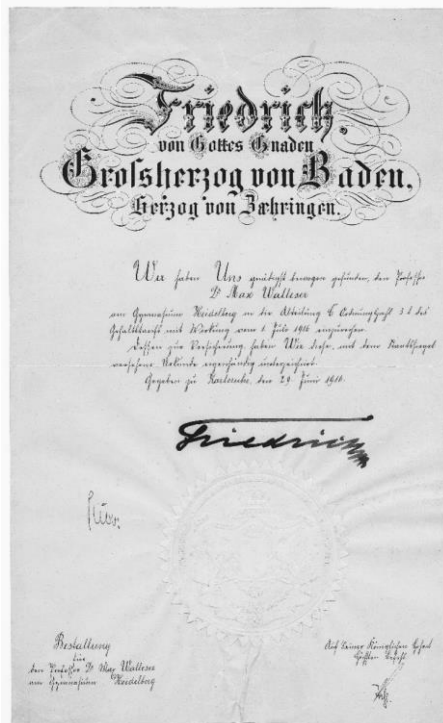 Friedrich,
von Gottes Gnaden
Grossherzog von Baden,
Herzog von Zæhringen.
Wir haben Uns gnädigst bewogen gefunden, den Professor
Dr Max Walleser
am Gymnasium Heidelberg in die Abteilung C Ordnungszahl 3 b des
Gehaltstarifs mit Wirkung vom 1. Juli 1916 einzureihen.
Dessen zur Versicherung haben Wir diese, mit dem Staatssiegel
versehene Urkunde eigenhändig unterzeichnet.
Gegeben zu Karlsruhe, den 29. Juni 1916.
Friedrich
Bestallung
für
den Professor Dr Max Walleser
am Gymnasium Heidelberg
Auf Seiner Königlichen Hoheit
höchsten Befehl